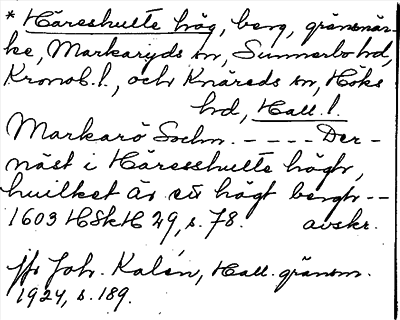 * Häreshulte hög, berg, gränsmär-
ke, Markaryds sn, Sunnerbo hd,
Kronob. l., och Knäreds sn, Höks
hd, Hall. l.
Markarö Sochn. - - - - - Der-
näst i Häresshulte högh,
huilket är ett högt bergh - -
1603 HSkH 29, s. 78. avskr.
jfr Joh. Kalén, Hall. gränsm.
1924, s. 189.